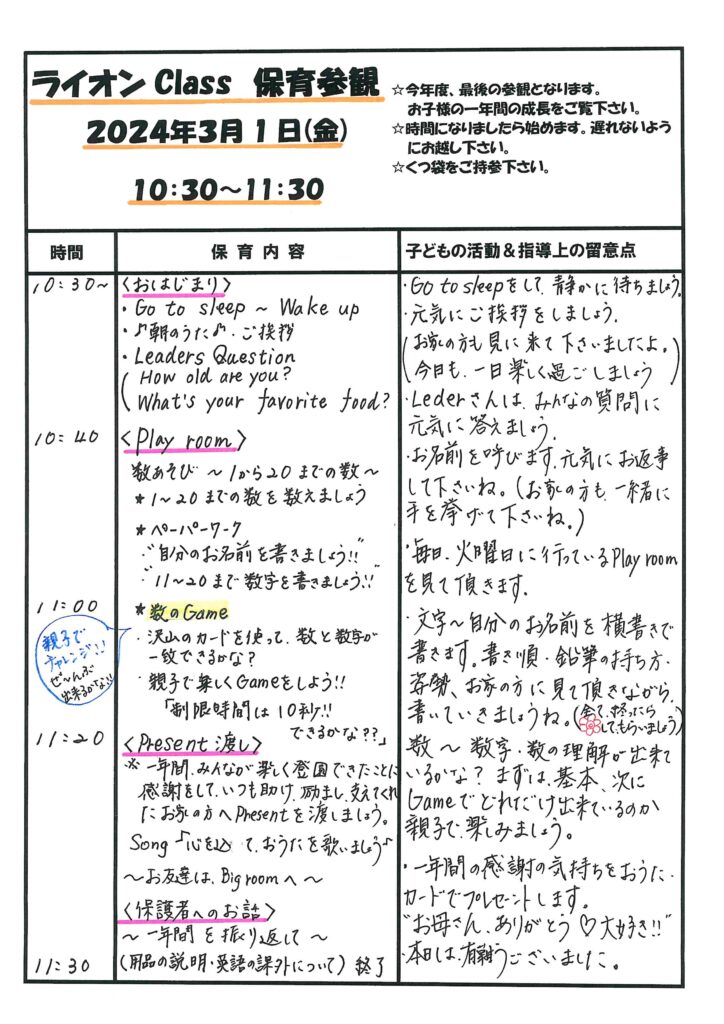 ライオン Class 保育参観
2024年3月1日(金)
10:30～11:30
☆今年度、最後の参観となります。
お子様の一年間の成長をご覧下さい。
☆時間になりましたら始めます。遅れないよう
にお越し下さい。
☆くつ袋をご持参下さい。
時間
保育内容
子どもの活動＆指導上の留意点
10:30～
〈おはじまり〉
・Go to sleep ～ Wake up
・♪朝のうた♪・ご挨拶
・Leaders Question
(How old are you?
What's your favorite food?
10:40
〈Play room〉
数あそび ～1から20までの数～
★1～20までの数を数えましょう
★ペーパーワーク
・"自分のお名前を書きましょう!!"
・"11～20まで数字を書きましょう!!"
11:00
★数のGame
・沢山のカードを使って、数と数字が
一致できるかな？
・親子で楽しくGameをしよう!!
「制限時間は10秒!!
できるかな??」
親子で
チャレンジ!!
ぜ～んぶ
出来るかな!!
11:20
〈Present渡し〉
※一年間、みんなが楽しく登園できたことに
感謝をして、いつも助け、励まし、支えてくれ
たお家の方へPresentを渡しましょう。
Song「心を込めて、おうたを歌いましょう」
～お友達は、Big roomへ～
〈保護者へのお話〉
～一年間を振り返して～
11:30
(用品の説明・英語の課外について) 終了
・Go to sleepをして、静かに待ちましょう。
・元気にご挨拶をしましょう。
(お家の方も見に来て下さいましたよ。
今日も、一日楽しく過ごしましょう)
・Lederさんは、みんなの質問に
元気に答えましょう。
・お名前を呼びます。元気にお返事
して下さいね。(お家の方も、一緒に
手を挙げて下さいね。)
・毎日、火曜日に行っているPlay room
を見て頂きます。
・文字～自分のお名前を横書きで
書きます。書き順・鉛筆の持ち方・
姿勢、お家の方に見て頂きながら、
書いていきましょうね。(全て、終ったら
してもらいましょう)
数～数字・数の理解が出来て
いるかな？まずは、基本、次に
Gameでどれだけ出来ているのか
親子で、楽しみましょう。
・一年間の感謝の気持ちをおうた・
カードでプレゼントします。
"お母さん、ありがとう♡大好き!!"
・本日は、有難うございました。